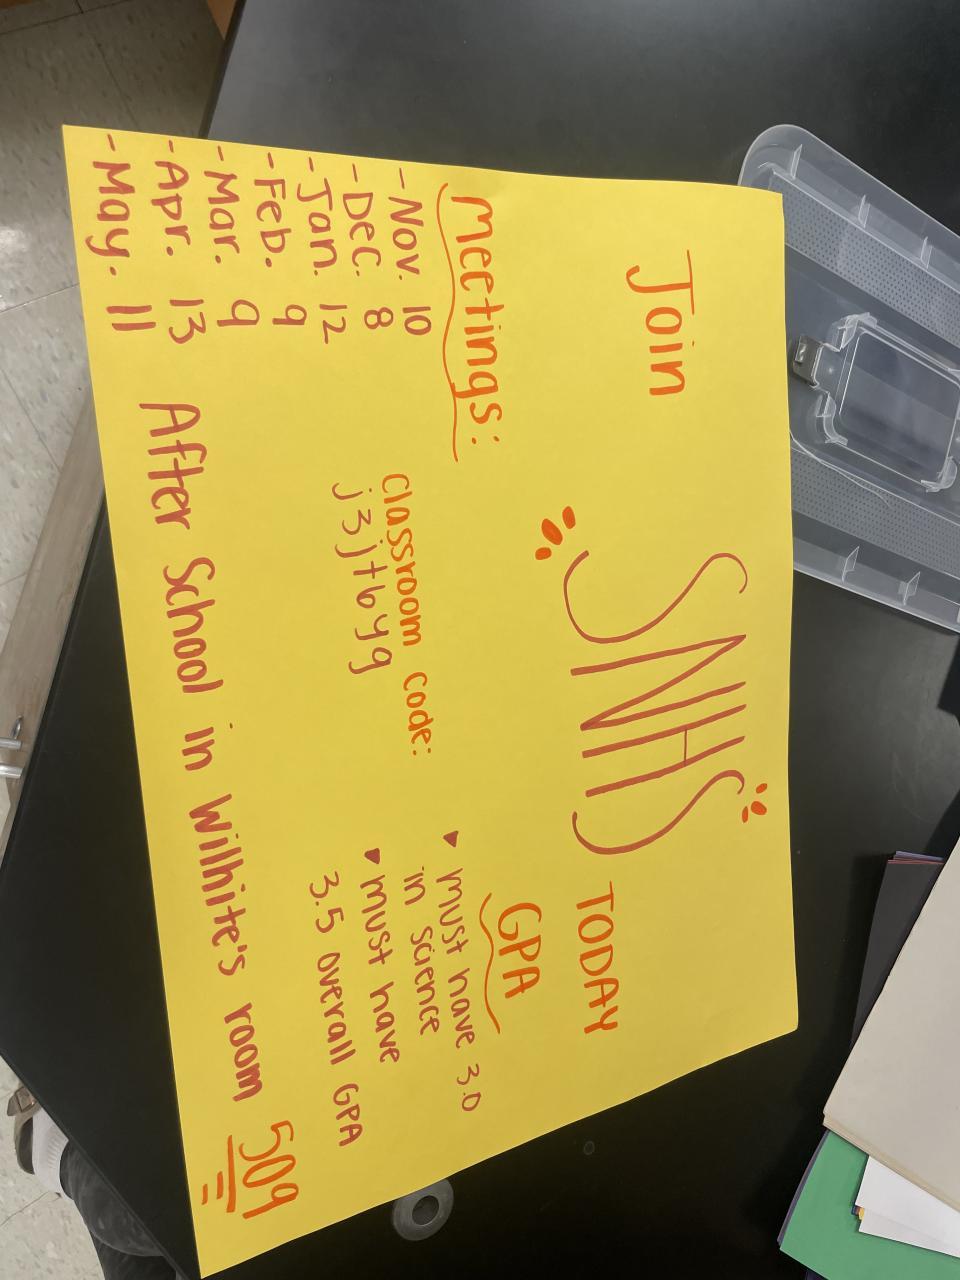 Join
SNHS
TODAY
Meetings:
- Nov. 10
- Dec. 8
- Jan. 12
- Feb. 9
- Mar. 9
- Apr. 13
- May. 11
Classroom code:
j3jtbyg
GPA
♥ must have 3.0
in science
♥ must have
3.5 overall GPA
After School in Wilhite's room 509